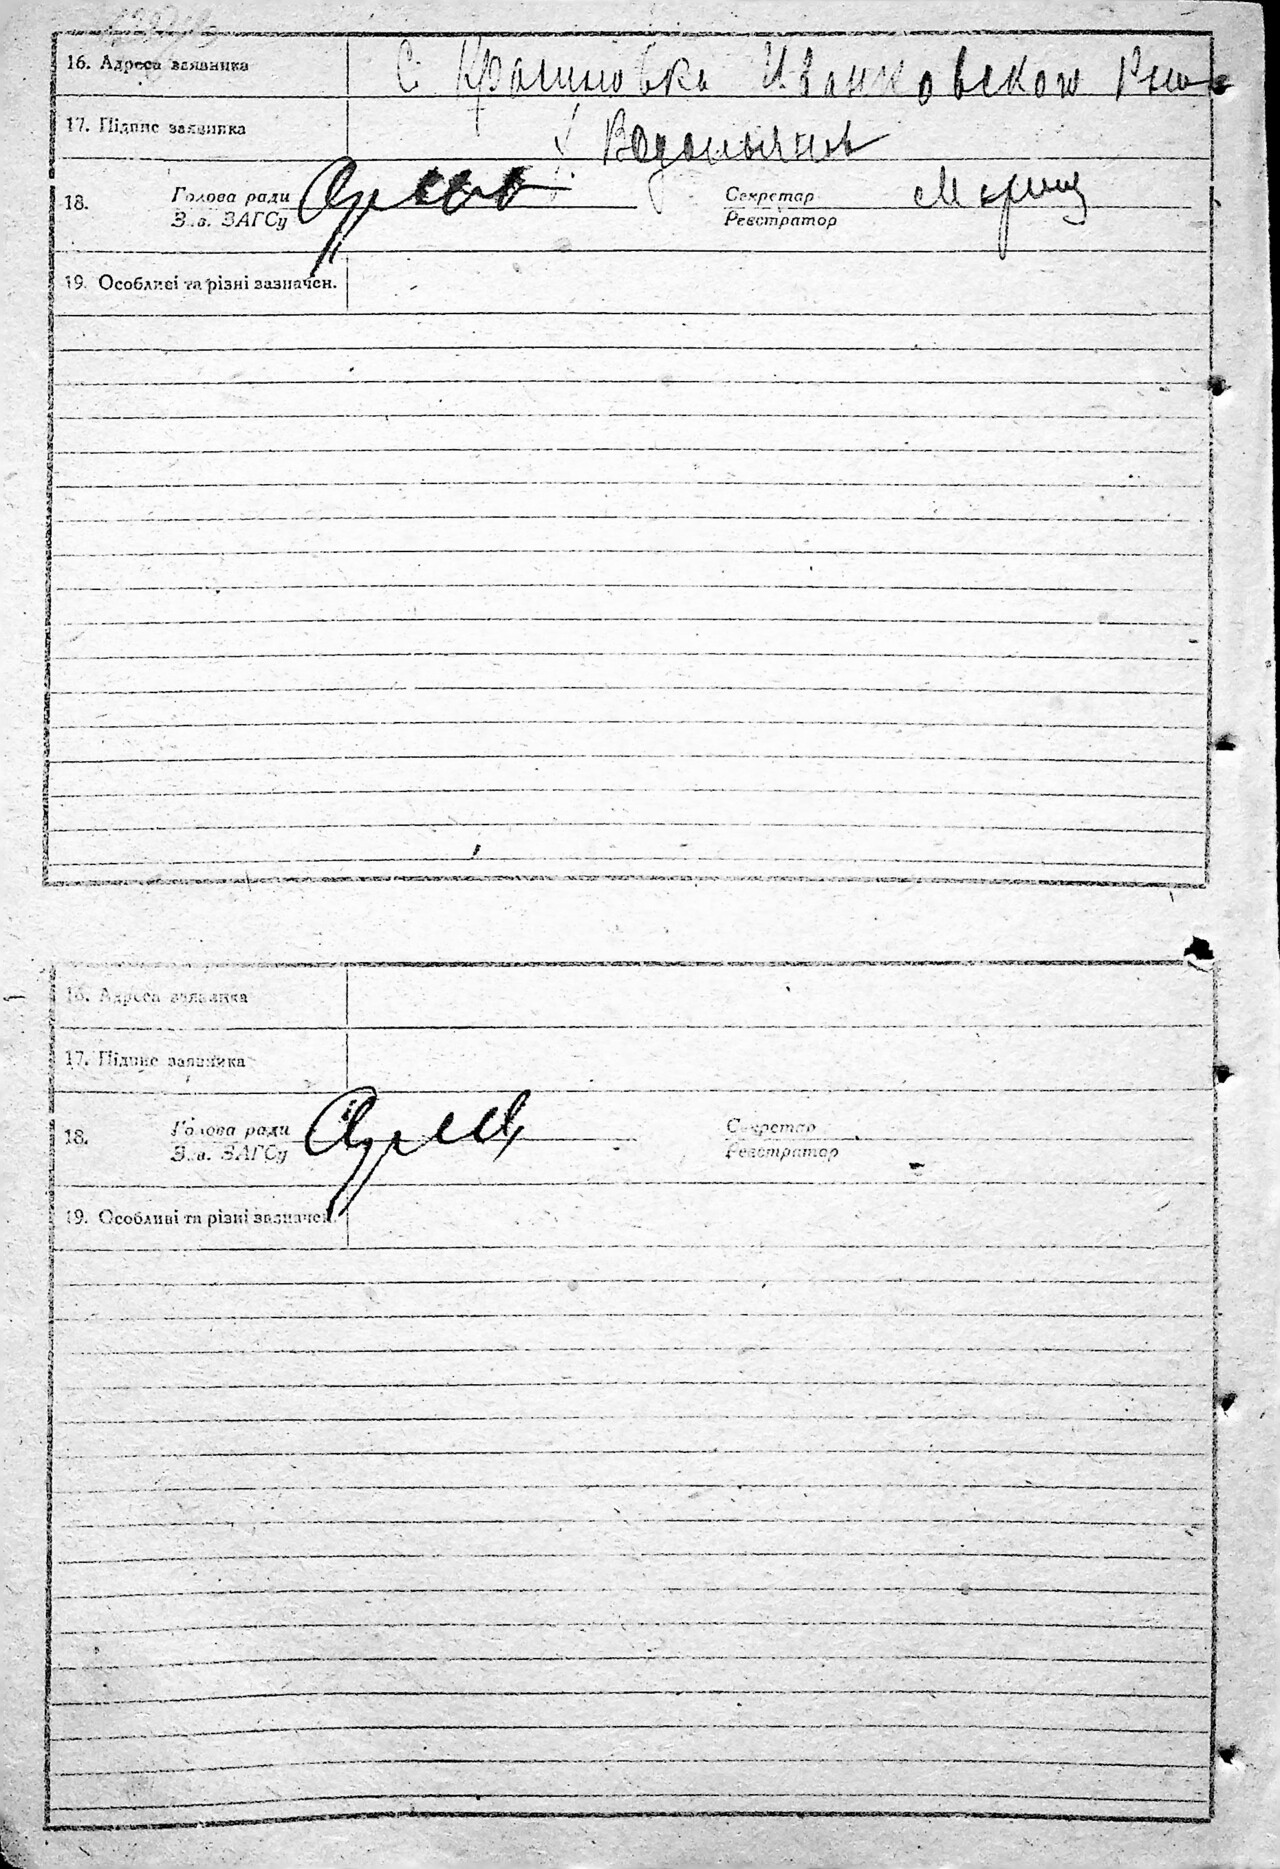 16. Адреса заявника С. Крапивовка Иванковского Р-на
17. Підпис заявника
18. Голова ради Секретар
Зав. ЗАГСу Реєстратор
19. Особливі та різні зазначен.
16. Адреса заявника
17. Підпис заявника
18. Голова ради Секретар
Зав. ЗАГСу Реєстратор
19. Особливі та різні зазначен.